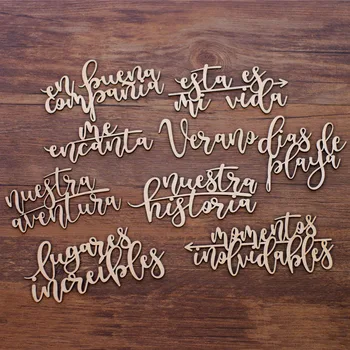 en buena
compañia
esta es
mi vida
me
encanta
Verano
dias de
playa
nuestra
aventura
nuestra
historia
lugares
increibles
momentos
inolvidables